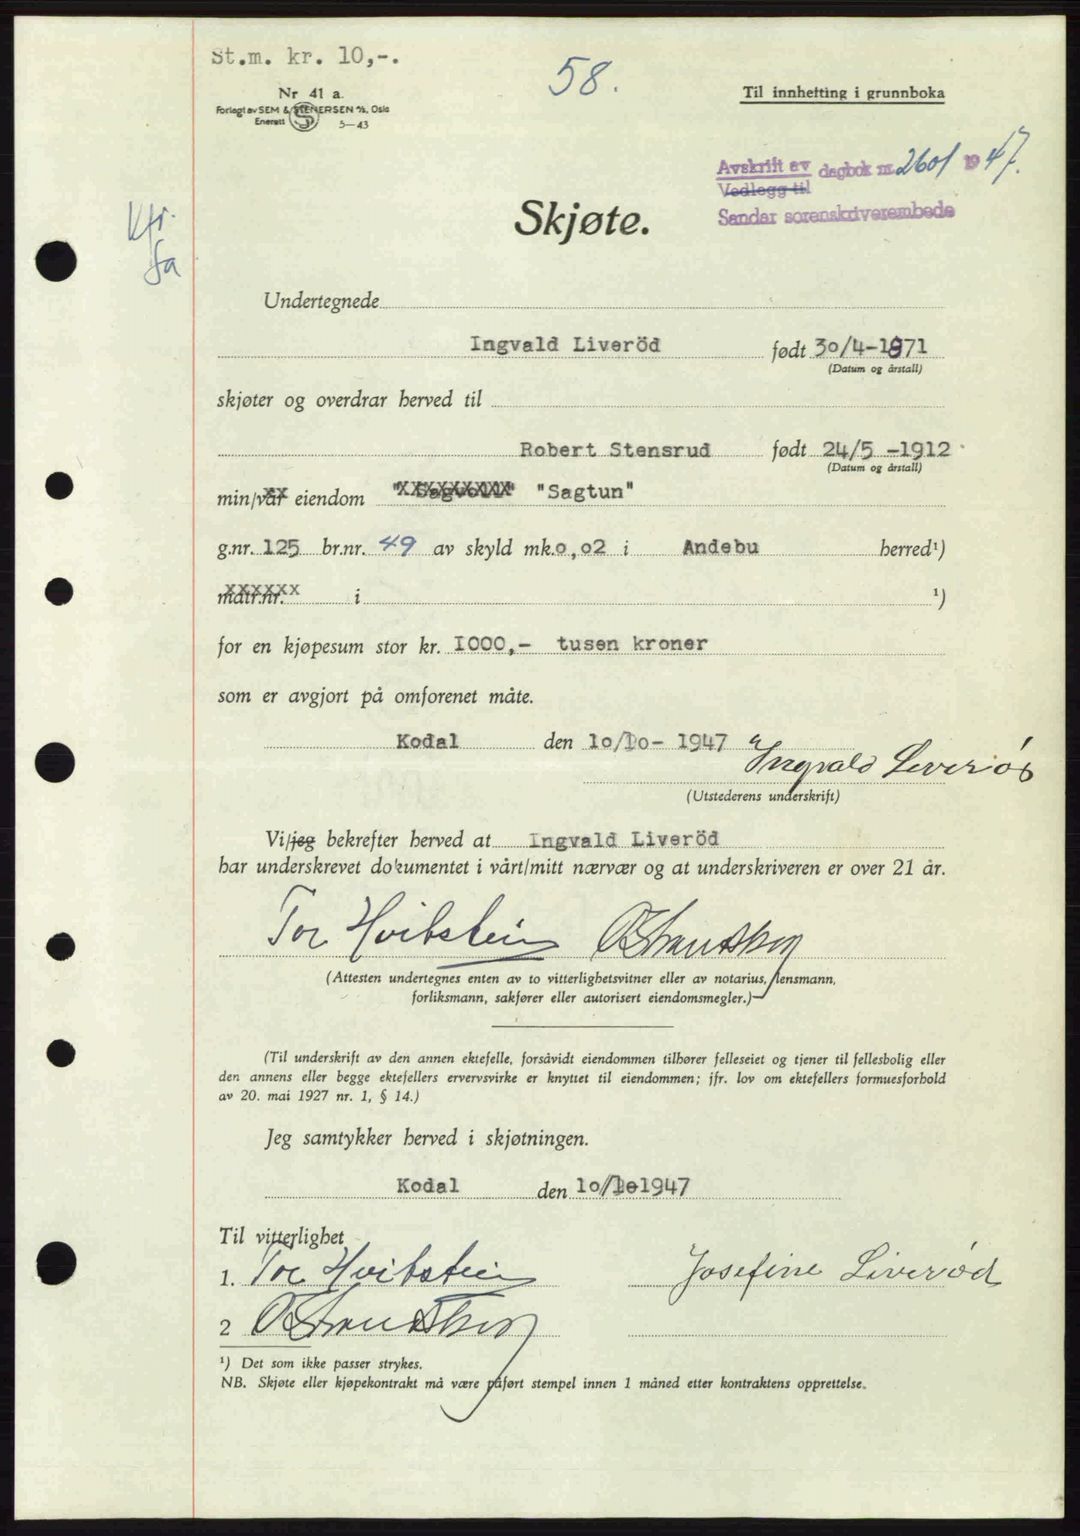 St.m. kr. 10,-.
58.
Nr 41 a.
Forlagt av SEM & STENERSEN A/S, Oslo
Enerett 5—43
Til innhefting i grunnboka
Avskrift av dagbok nr. 2601 1947.
Vedlegg til
Sandar sorenskriverembede
Kfr.
fa
Skjøte.
Undertegnede
Ingvald Liveröd født 30/4-1871
(Datum og årstall)
skjøter og overdrar herved til
Robert Stensrud født 24/5 -1912
(Datum og årstall)
min/vår eiendom "Sagvoll" "Sagtun"
g.nr. 125 br.nr. 49 av skyld mk. 0,02 i Andebu herred¹)
matr.nr. i ¹)
for en kjøpesum stor kr. 1000,- tusen kroner
som er avgjort på omforenet måte.
Kodal den 10/10- 1947 Ingvald Liverød
(Utstederens underskrift)
Vi/jeg bekrefter herved at Ingvald Liveröd
har underskrevet dokumentet i vårt/mitt nærvær og at underskriveren er over 21 år.
Tor Hvitstein
(Attesten undertegnes enten av to vitterlighetsvitner eller av notarius, lensmann,
forliksmann, sakfører eller autorisert eiendomsmegler.)
(Til underskrift av den annen ektefelle, forsåvidt eiendommen tilhører felleseiet og tjener til fellesbolig eller
den annens eller begge ektefellers ervervsvirke er knyttet til eiendommen; jfr. lov om ektefellers formuesforhold
av 20. mai 1927 nr. 1, § 14.)
Jeg samtykker herved i skjøtningen.
Kodal den 10/10-1947
Til vitterlighet
1. Tor Hvitstein Josefine Liverød
2
¹) Det som ikke passer strykes.
NB. Skjøte eller kjøpekontrakt må være påført stempel innen 1 måned etter kontraktens opprettelse.